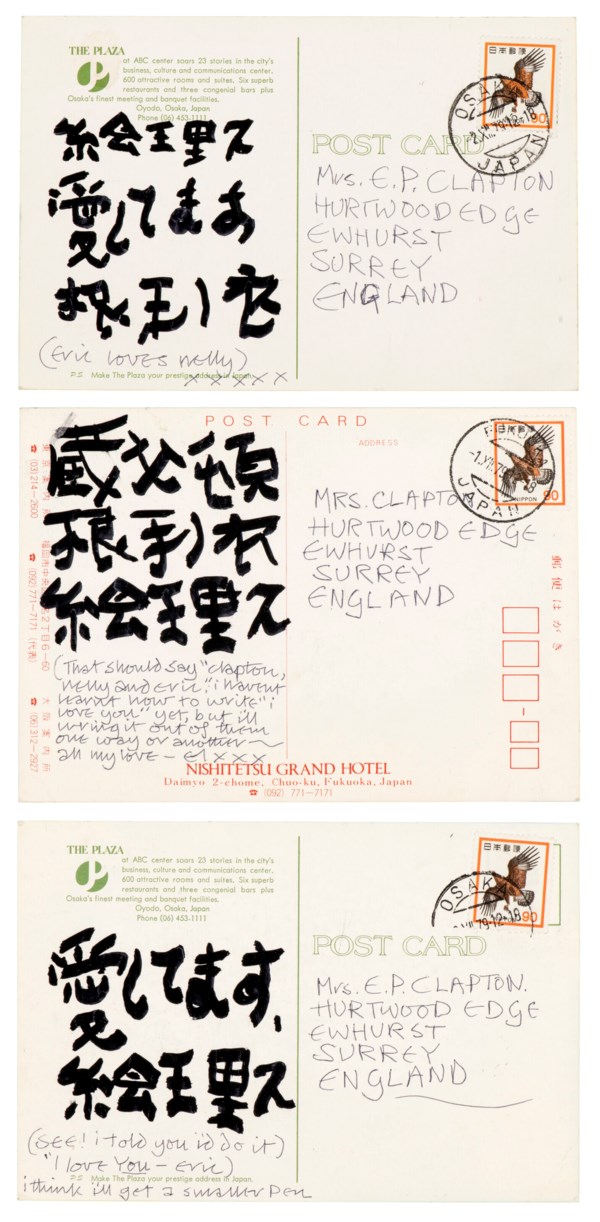 THE PLAZA
at ABC center soars 23 stories in the city's
business, culture and communications center.
600 attractive rooms and suites. Six superb
restaurants and three congenial bars plus
Osaka's finest meeting and banquet facilities.
Oyodo, Osaka, Japan
Phone (06) 453-1111
絵理ス
愛してまあ
根利衣
(Eric loves nelly)
P.S. Make The Plaza your prestige address in Japan.
x x x x x
日本郵便
90
OSAKA
JAPAN
POST CARD
Mrs. E.P. CLAPTON
HURTWOOD EDGE
EWHURST
SURREY
ENGLAND
POST CARD
ADDRESS
蔵父頓
根利衣
絵理ス
(03)214-2600
(092)771-7171 (代表)
大阪案内所
(06)312-2927
(That should say "clapton,
nelly and eric", i havent
learnt how to write "i
love you" yet, but i'll
wring it out of them
one way or another~
all my love - El x x x
NISHITETSU GRAND HOTEL
Daimyo 2-chome, Chuo-ku, Fukuoka, Japan
☎ (092) 771-7171
日本郵便
NIPPON
90
JAPAN
MRS. CLAPTON
HURTWOOD EDGE
EWHURST
SURREY
ENGLAND
郵便はがき
THE PLAZA
at ABC center soars 23 stories in the city's
business, culture and communications center.
600 attractive rooms and suites. Six superb
restaurants and three congenial bars plus
Osaka's finest meeting and banquet facilities.
Oyodo, Osaka, Japan
Phone (06) 453-1111
愛してます、
絵理ス
(SEE! i told you i'd do it)
"I love You - Eric)
P.S. Make The Plaza your prestige address in Japan.
i think i'll get a smaller pen
日本郵便
90
OSAKA
POST CARD
Mrs. E.P. CLAPTON.
HURTWOOD EDGE
EWHURST
SURREY
ENGLAND